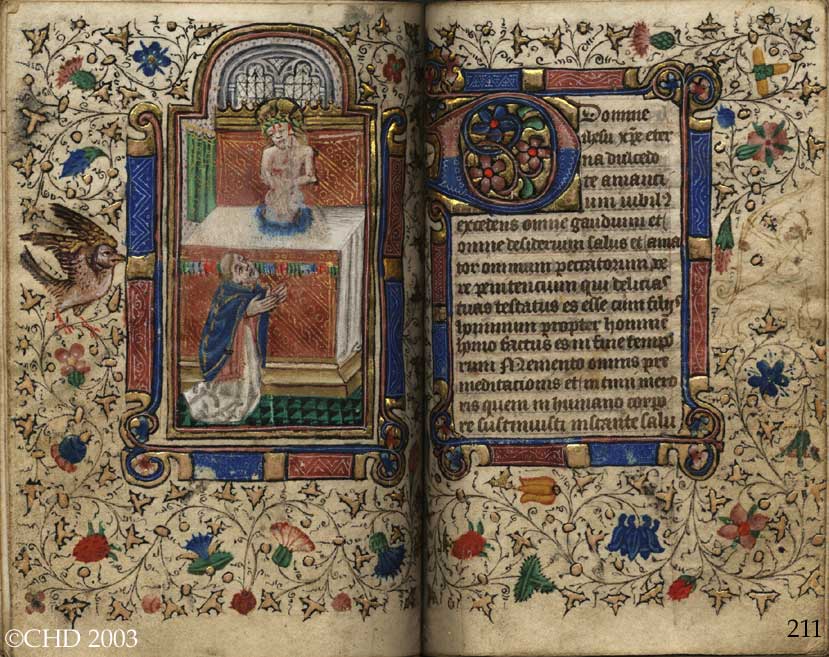 O Domine
ihesu xp̄e eter
na dulcedo
te amanti
um iubil9
excedens omne gaudium et
omne desiderium salus et ama
tor omnium peccatorum xe
re penitencium qui delicias
tuas testatus es esse cum filijs
hominum propter hominē
homo factus es in fine tempo
rum Memento omnis pre
meditacionis et intimi mero
ris quem in humano corpo
re sustinuisti instante salu
©CHD 2003
211